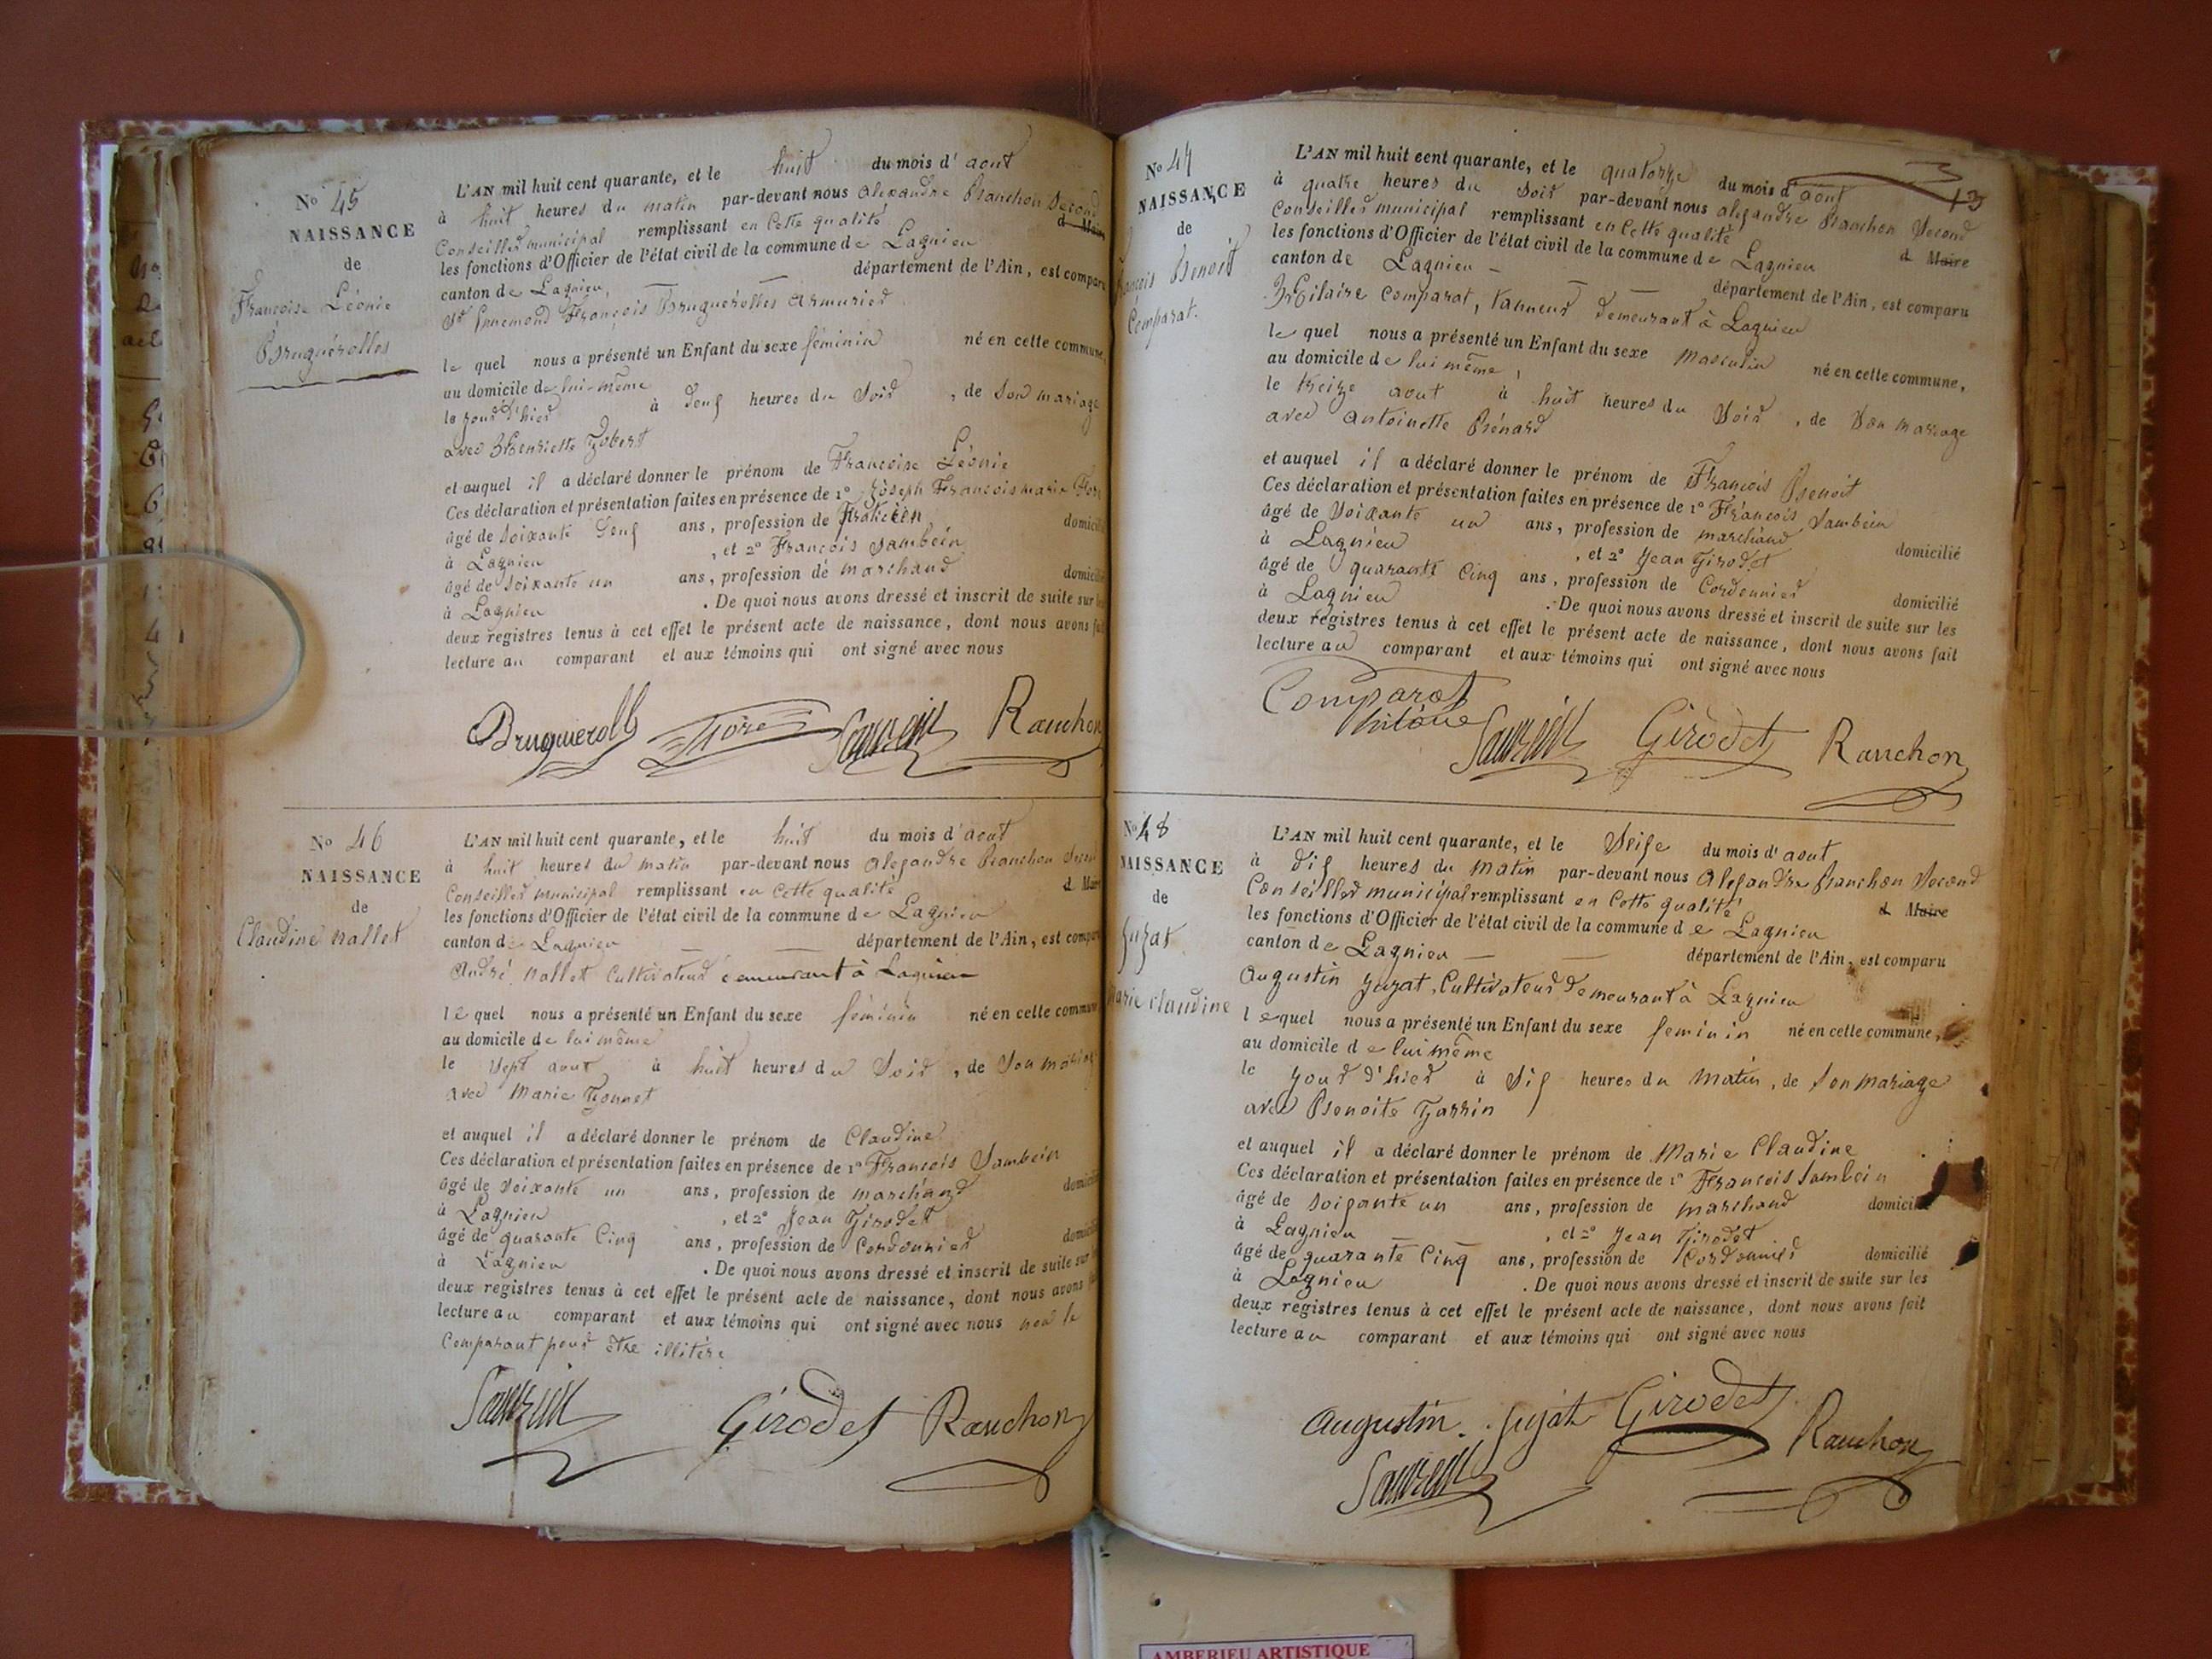 No 45
NAISSANCE
de
Françoise Léonie
Bruguérolles
L'AN mil huit cent quarante, et le huit du mois d'aout
à huit heures du matin par-devant nous alexandre Ranchon Second
Conseiller municipal remplissant en Cette qualité d Maire
les fonctions d'Officier de l'état civil de la commune de Lagnieu
canton de Lagnieu, département de l'Ain, est comparu
St Ennemond François Bruguérolles Armurier
le quel nous a présenté un Enfant du sexe féminin né en cette commune,
au domicile de lui-même
le jour d'hier à deux heures du Soir, de Son mariage
avec Henriette
et auquel il a déclaré donner le prénom de Françoise Léonie
Ces déclaration et présentation faites en présence de 1° Joseph François marie
âgé de soixante deux ans, profession de domicilié
à Lagnieu, et 2° François
âgé de soixante un ans, profession de marchand domicilié
à Lagnieu. De quoi nous avons dressé et inscrit de suite sur les
deux registres tenus à cet effet le présent acte de naissance, dont nous avons fait
lecture au comparant et aux témoins qui ont signé avec nous
Ranchon
No 46
NAISSANCE
de
Claudine nallet
L'AN mil huit cent quarante, et le huit du mois d'aout
à huit heures du matin par-devant nous alexandre Ranchon Second
Conseiller municipal remplissant en Cette qualité d Maire
les fonctions d'Officier de l'état civil de la commune de Lagnieu
canton de Lagnieu département de l'Ain, est comparu
André nallet Cultivateur demeurant à Lagnieu
le quel nous a présenté un Enfant du sexe féminin né en cette commune
au domicile de lui même
le sept aout à huit heures du Soir, de Son mariage
avec Marie
et auquel il a déclaré donner le prénom de Claudine
Ces déclaration et présentation faites en présence de 1° François
âgé de soixante un ans, profession de marchand domicilié
à Lagnieu, et 2° Jean Girodet
âgé de quarante Cinq ans, profession de Cordonnier domicilié
à Lagnieu. De quoi nous avons dressé et inscrit de suite sur les
deux registres tenus à cet effet le présent acte de naissance, dont nous avons fait
lecture au comparant et aux témoins qui ont signé avec nous non le
Comparant pour être illitéré
Girodet Ranchon
No 47
NAISSANCE
de
François Benoit
Comparat.
13
L'AN mil huit cent quarante, et le quatorze du mois d'aout
à quatre heures du soir par-devant nous alexandre Ranchon Second
Conseiller municipal remplissant en Cette qualité d Maire
les fonctions d'Officier de l'état civil de la commune de Lagnieu
canton de Lagnieu département de l'Ain, est comparu
Hilaire Comparat, tanneur demeurant à Lagnieu
le quel nous a présenté un Enfant du sexe masculin né en cette commune,
au domicile de lui même,
le treize aout à huit heures du Soir, de Son mariage
avec antoinette Bénard
et auquel il a déclaré donner le prénom de François Benoit
Ces déclaration et présentation faites en présence de 1° François
âgé de soixante un ans, profession de marchand domicilié
à Lagnieu, et 2° Jean Girodet
âgé de quarante Cinq ans, profession de Cordonnier domicilié
à Lagnieu. De quoi nous avons dressé et inscrit de suite sur les
deux registres tenus à cet effet le présent acte de naissance, dont nous avons fait
lecture au comparant et aux témoins qui ont signé avec nous
Comparat
hilaire
Girodet Ranchon
No 48
NAISSANCE
de
Juzat
Marie Claudine
L'AN mil huit cent quarante, et le Seize du mois d'aout
à dix heures du matin par-devant nous Alexandre Ranchon Second
Conseiller municipal remplissant en Cette qualité d Maire
les fonctions d'Officier de l'état civil de la commune de Lagnieu
canton de Lagnieu département de l'Ain, est comparu
Augustin Juzat, Cultivateur demeurant à Lagnieu
le quel nous a présenté un Enfant du sexe feminin né en cette commune,
au domicile de lui même
le jour d'hier à dix heures du matin, de son mariage
avec Benoite
et auquel il a déclaré donner le prénom de Marie Claudine
Ces déclaration et présentation faites en présence de 1° François
âgé de soixante un ans, profession de marchand domicilié
à Lagnieu, et 2° Jean Girodet
âgé de quarante Cinq ans, profession de Cordonnier domicilié
à Lagnieu. De quoi nous avons dressé et inscrit de suite sur les
deux registres tenus à cet effet le présent acte de naissance, dont nous avons fait
lecture au comparant et aux témoins qui ont signé avec nous
Augustin Jujat Girodet Ranchon
AMBERIEU ARTISTIQUE